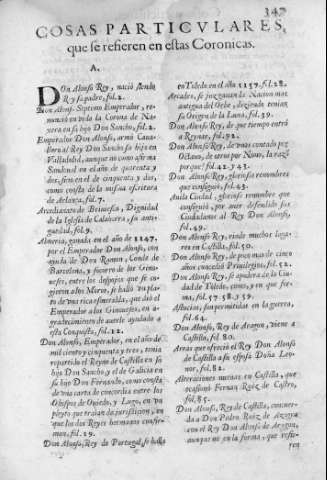 347
COSAS PARTICVLARES,
que se refieren en estas Coronicas.
A.
DOn Alonso Rey, nació siendo
Rey su padre, fol. 2.
Don Alonso Septimo Emperador, re-
nunciò en vida la Corona de Na-
gera en su hijo Don Sancho, fol. 2.
Emperador Don Alonso, armò Cava-
llero al Rey Don Sancho su hijo en
Valladolid, aunque no como afirma
Sandoval en el año de quarenta y
dos, sino en el de cinquenta y dos,
como consta de la misma escritura
de Arlança, fol. 7.
Arcedianato de Berbiesca, Dignidad
de la Iglesia de Calahorra, su anti-
guedad, fol. 9.
Almeria, ganada en el año de 1147.
por el Emperador Don Alonso, con
ayuda de Don Ramon, Conde de
Barcelona, y socorro de los Gino-
veses, entre los despojos que se co-
gieron a los Moros, se hallò un pla-
to de vna rica esmeralda, que diò el
Emperador a los Ginoveses, en a-
gradecimiento de averle ayudado a
esta Conquista, fol. 12.
Don Alonso, Emperador, en el año de
mil ciento y cinquenta y tres, tenia
repartido el Reyno de Castilla en su
hijo Don Sancho y el de Galicia en
su hijo Don Fernando, como consta
de vna carta de concordia entre los
Obispos de Oviedo, y Lugo, en vn
pleyto que traian de jurisdicion, en
que los dos Reyes hermanos confir-
man, fol. 19.
Don Alonso, Rey de Portugal, se hallò
en Toledo en el año 1157. fol. 28.
Arcades, se juzgavan de Nacion mas
antigua del Orbe, diziendo tenian
su Origen de la Luna, fol. 39.
Don Alonso Rey, de que tiempo entrò
a Reynar, fol. 92.
Don Alonso Rey, de vnos contado por
Octavo, de otros por Nono, la razõ
porque? fol. 42. y 43.
Don Alonso Rey, gloriosos renombres
que consiguiò, fol. 43.
Avila Ciudad, glorioso renombre que
consiguiò, por aver defendido sus
Ciudadanos al Rey Don Alonso,
fol. 49.
Don Alonso Rey, rinde muchos luga-
res en Castilla, fol. 50.
Don Alonso Rey, de poco mas de cinco
años concediò Privilegios, fol. 52.
Don Alonso Rey, se apodera de la Ciu-
dad de Toledo, como, y en que for-
ma, fol. 57. 58. y 59.
Astucias, son permitidas en la guerra,
fol. 64.
Don Alonso, Rey de Aragon, viene a
Castilla, fol. 80.
Arras que ofreciò el Rey Don Alonso
de Castilla a su esposa Doña Leo-
nor, fol. 82.
Alteraciones nuevas en Castilla, que
ocasionò Fernan Ruiz de Castro,
fol. 85.
Don Alonso, Rey de Castilla, concuer-
da a Don Pedro Ruiz de Azagra
con el Rey Don Alonso de Aragon,
aunque no en la forma, que refie-
ren